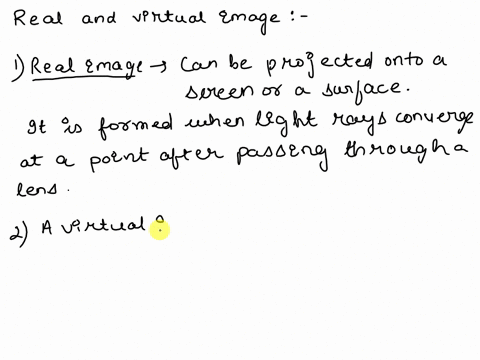 Real and virtual Image :-
1) Real Image → Can be projected onto a
screen or a surface.
It is formed when light rays converge
at a point after passing through a
lens.
2) A virtual